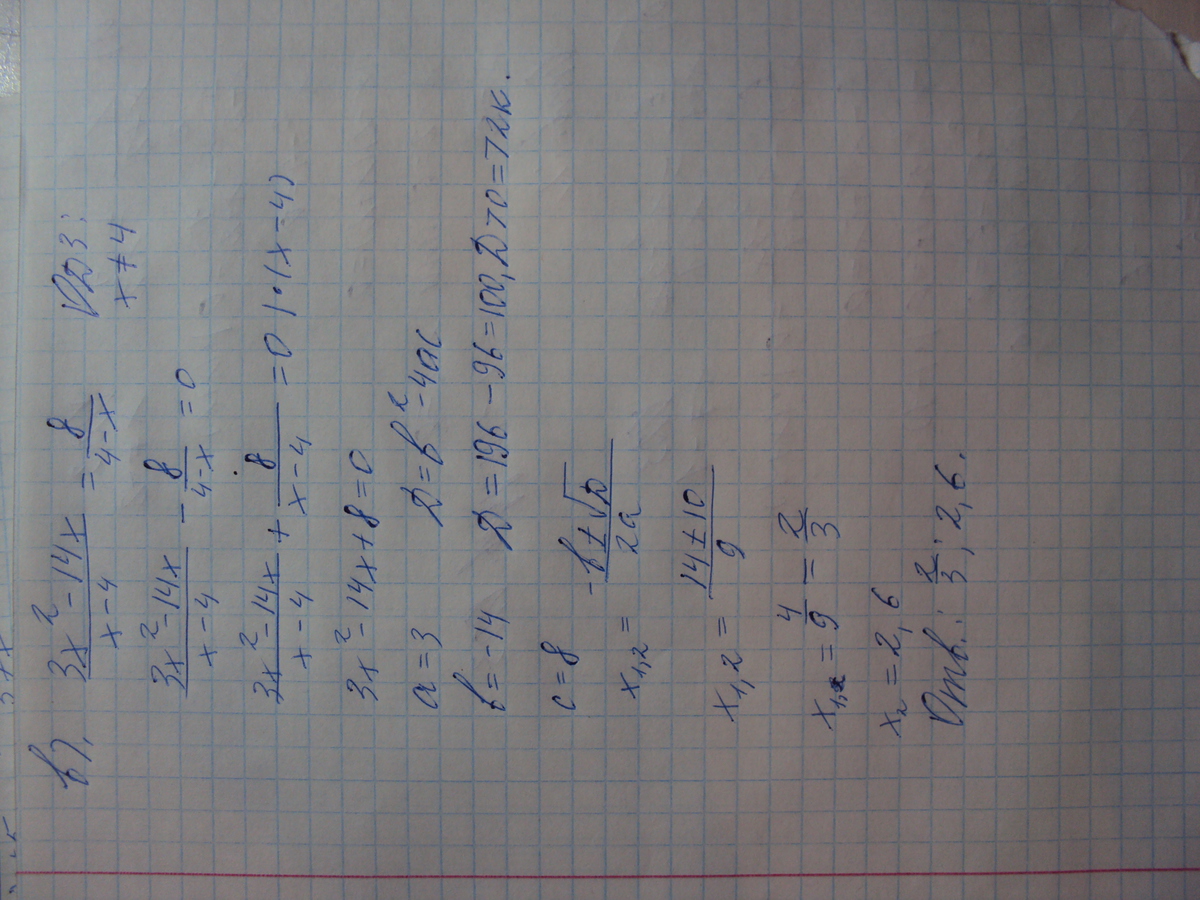 в). (3x² - 14x)/(x - 4) = 8/(4 - x) ОДЗ:
x ≠ 4
(3x² - 14x)/(x - 4) - 8/(4 - x) = 0
(3x² - 14x)/(x - 4) + 8/(x - 4) = 0 | · (x - 4)
3x² - 14x + 8 = 0
a = 3 D = b² - 4ac
b = -14 D = 196 - 96 = 100, D > 0 => 2к.
c = 8
x₁,₂ = (-b ± √D)/2a
x₁,₂ = (14 ± 10)/9
x₁ = 4/9 = 2/3
x₂ = 2,6
Отв.: 2/3; 2,6.